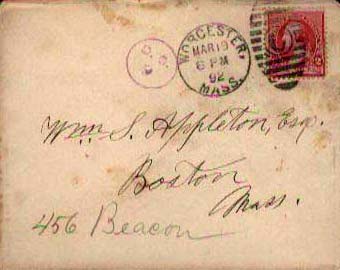 WORCESTER,
MAR 19
6 PM
92
MASS.
2
Wm S. Appleton, Esq.
Boston
Mass.
456 Beacon